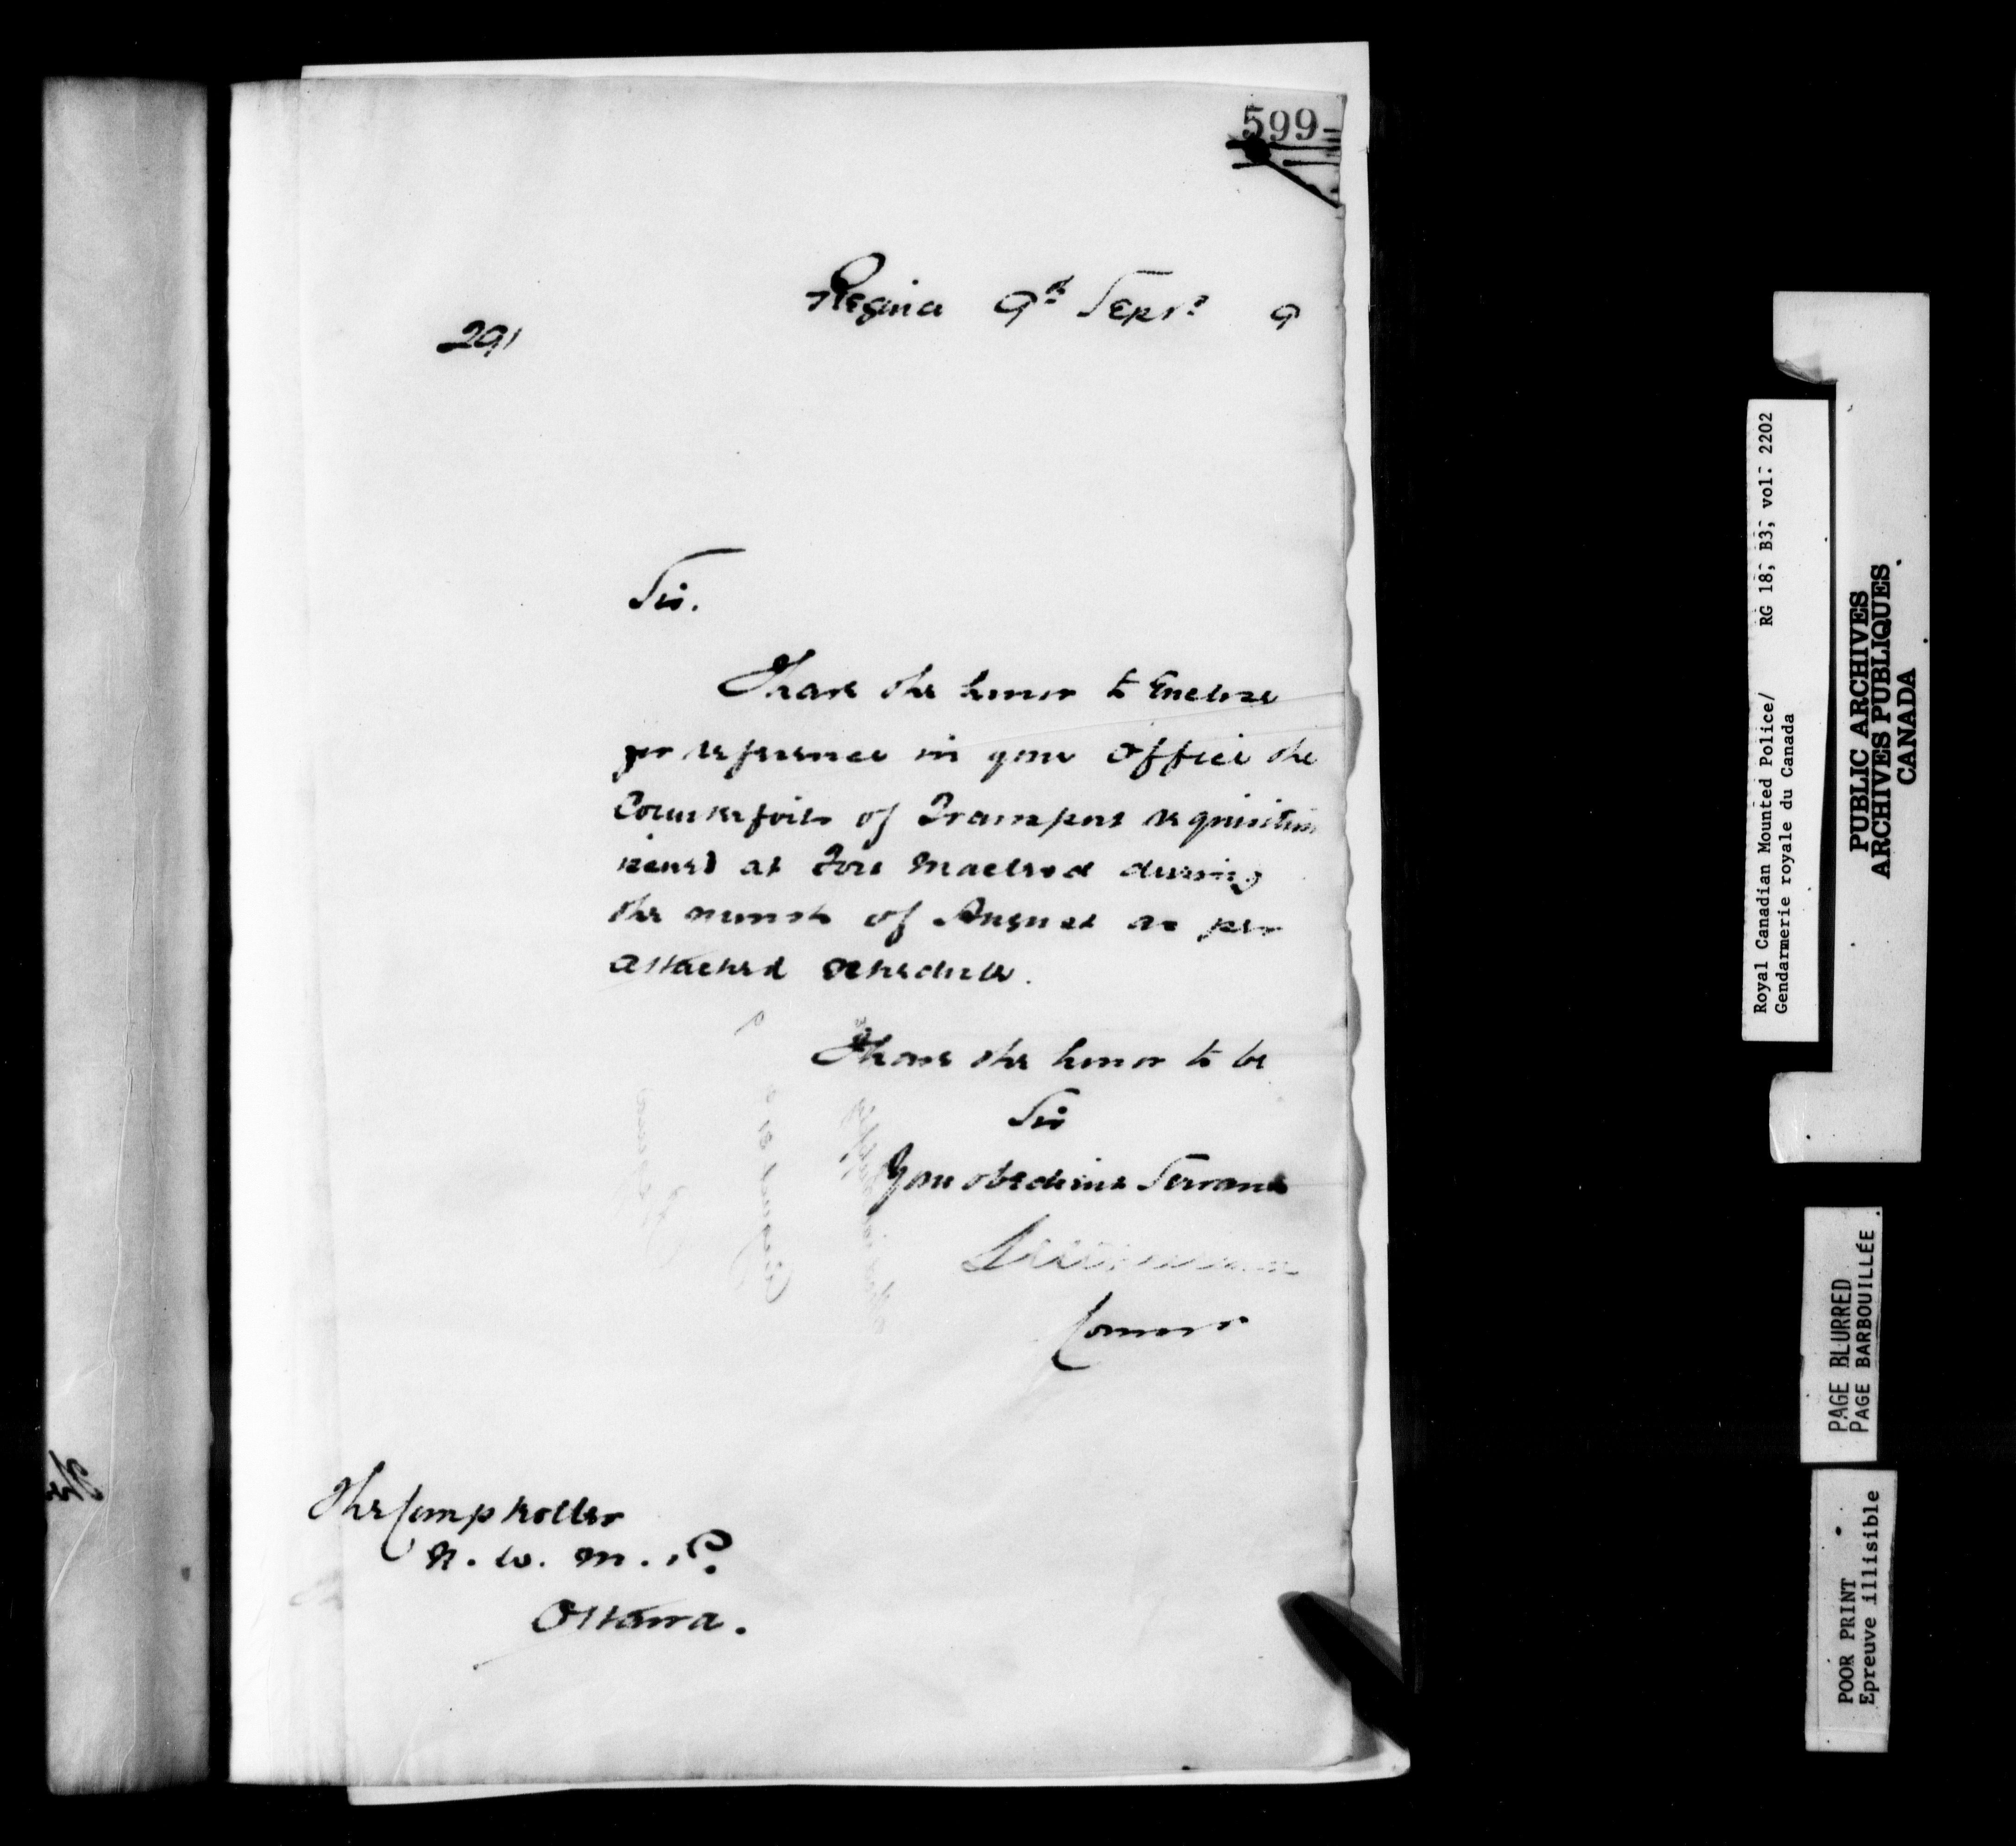 599
Regina 9th Sept. 9
291
Sir.
I have the honor to Enclose
for reference in your Office the
Counterfoils of Transport requisition
issued at Fort Macleod during
the month of August as per
attached schedule.
I have the honor to be
Sir
Your obedient Servant
Commr
The Comptroller
N. W. M. P.
Ottawa.
Royal Canadian Mounted Police/ RG 18, B3, vol. 2202
Gendarmerie royale du Canada
PUBLIC ARCHIVES
ARCHIVES PUBLIQUES
CANADA
PAGE BLURRED
PAGE BARBOUILLÉE
POOR PRINT
Epreuve illisible